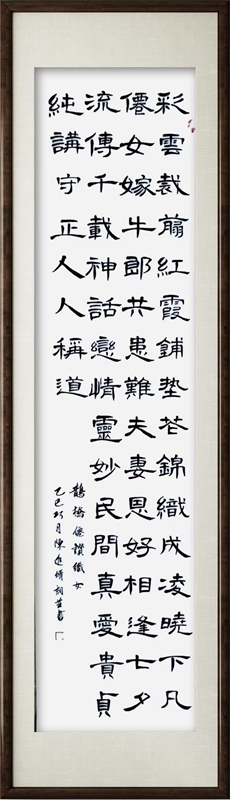 彩雲裁翦紅霞鋪墊芲錦織成凌曉下凡
僊女嫁牛郎共患難夫妻恩好相逢七夕
流傳千載神話戀情靈妙民間真愛貴貞
純講守正人人稱道
鵲橋僊讚織女
乙巳巧月陳